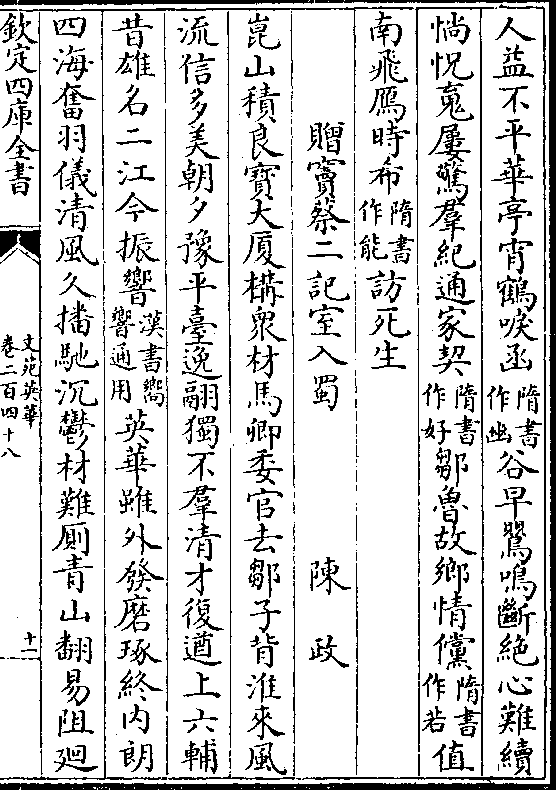 人益不平華亭宵鶴唳函隋書作幽谷早鸎鳴斷絶心難續
惝怳䰟屢驚羣紀通家契隋書作好鄒魯故鄉情儻隋書作若值
南飛鴈時布隋書作能訪死生
贈竇蔡二記室入蜀 陳政
崑山積良寳大厦構衆材馬卿委官去鄒子背淮來風
流信多美朝夕豫平臺逸翮獨不羣清才復遒上六輔
昔雄名二江今振響漢書嚮響通用英華雖外發磨琢終内朗
四海奮羽儀清風久播馳沉鬱材難厠青山翻易阻廻
欽定四庫全書
文苑英華
卷二百四十八
十一